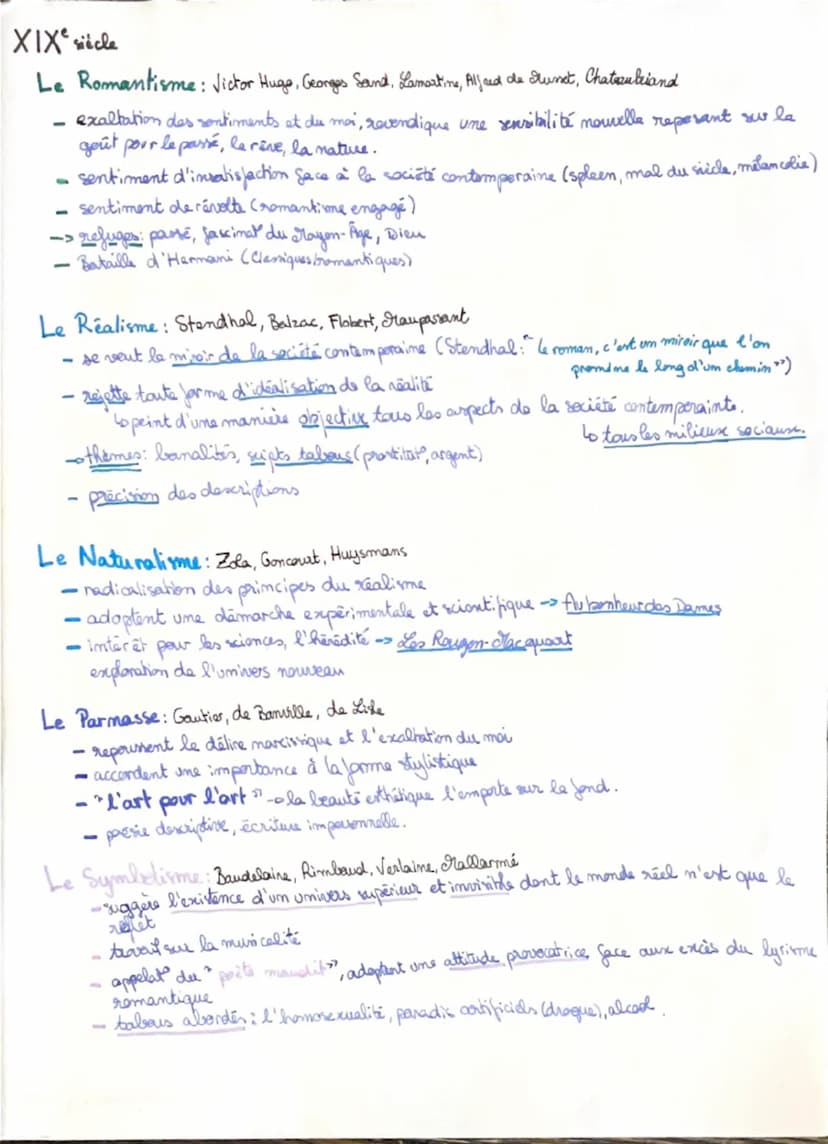 XIXe siècle
Le Romantisme : Victor Hugo, Georges Sand, Lamartine, Alfred de Musset, Chateaubriand
- exaltation des sentiments et du moi, revendique une sensibilité nouvelle reposant sur la
goût pour le passé, le rêve, la nature.
- sentiment d'insatisfaction face à la société contemporaine (spleen, mal du siècle, mélancolie)
- sentiment de révolte (romantisme engagé)
-> refuges: passé, fascinat° du Moyen-Âge, Dieu
- Bataille d'Hernani (Classiques/romantiques)
Le Réalisme : Stendhal, Balzac, Flobert, Maupassant
- se veut le miroir de la société contemporaine (Stendhal: "Le roman, c'est un miroir que l'on
promène le long d'un chemin")
- rejette toute forme d'idéalisation de la réalité
↳ peint d'une manière objective tous les aspects de la société contemporainte.
↳ tous les milieux sociaux.
-> thèmes: banalités, sujets tabous (prostitat°, argent)
- précision des descriptions
Le Naturalisme : Zola, Goncourt, Huysmans
- radicalisation des principes du réalisme
- adoptent une démarche expérimentale et scientifique -> Au bonheur des Dames
- intérêt pour les sciences, l'hérédité -> Les Rougon-Macquart
exploration de l'univers nouveau
Le Parnasse : Gautier, de Banville, de Lisle
- repoussent le délire narcissique et l'exaltation du moi
- accordent une importance à la forme stylistique
- "l'art pour l'art" -> la beauté esthétique l'emporte sur le fond.
- poésie descriptive, écriture impersonnelle.
Le Symbolisme : Baudelaire, Rimbaud, Verlaine, Mallarmé
- suggère l'existence d'un univers supérieur et invisible dont le monde réel n'est que le
reflet
- travail sur la musicalité
- appelat° du "poète maudit", adoptent une attitude provocatrice face aux excès du lyrisme
romantique
- tabous abordés : l'homosexualité, paradis artificiels (drogue), alcool.